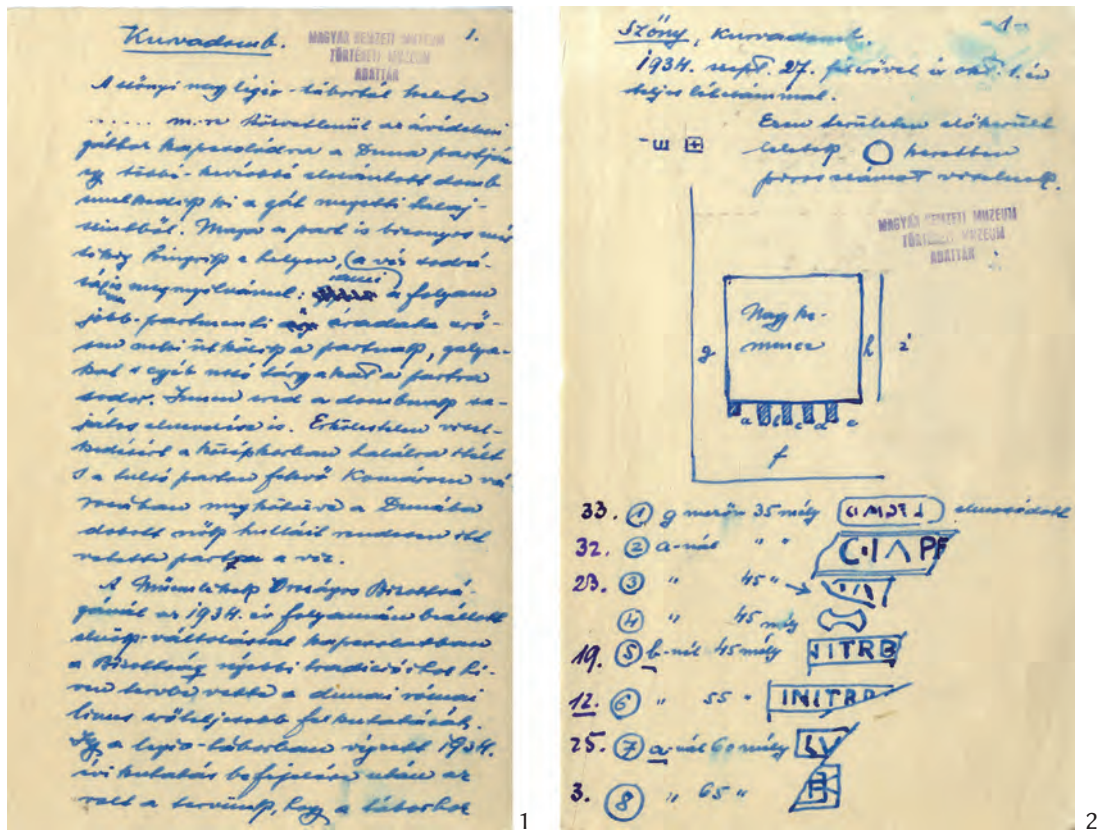 Kurvadomb.
1.
MAGYAR NEMZETI MUZEUM
TÖRTÉNETI MUZEUM
ADATTÁR
A szőnyi nagy légio-tábortól keletre
...... m.-re közvetlenül az árvédelmi
gáthoz kapcsolódva a Duna partján
egy többé-kevésbbé domb
emelkedik ki a gát megetti talaj-
szintből. Maga a part is bizonyos mér-
tékig e helyen, (a víz sodrá-
megnyilvánul: a folyam
jobb-partmenti áradata erő-
sen neki ütközik a partnak, galya-
kat s egyéb uszó tárgyakat a partra
sodor. Innen ered a dombnak sa-
játos elnevezése is. Erkölcstelen visel-
kedésért a középkorban halálra itélt
s a tulsó parton fekvő Komárom vá-
rosában megkötözve a Dunába
dobott nők hulláit rendesen itt
vetette partra a víz.
A Műemlékek Országos Bizottsá-
gánál az 1934. év folyamán beállott
elnök-változással kapcsolatban
a Bizottság régebbi tradicióihoz hí-
ven tervbe vette a dunai római
limes erőteljesebb felkutatását.
Így a legio-táborban végzett 1934.
évi kutatás befejezése után az
volt a tervünk, hogy a táborhoz
1
Szőny, Kurvadomb.
-1-
1934. szept. 27. és okt. 1. én
teljes létszámmal.
Ezen területen előkerült
leletek ◯ keretben
piros számot viselnek.
MAGYAR NEMZETI MUZEUM
TÖRTÉNETI MUZEUM
ADATTÁR
Nagy ke-
mence
g
h
i
a b c d e
f
33. ① g mezőn 35 mély elmosódott
32. ② a-nál " " C·IAPF
23. ③ " 45 "
④ " 45 mély
19. ⑤ b-nél 45 mély NITRB
12. ⑥ " 55 " INITRB
25. ⑦ a-nál 60 mély LV
3. ⑧ " 65 "
2